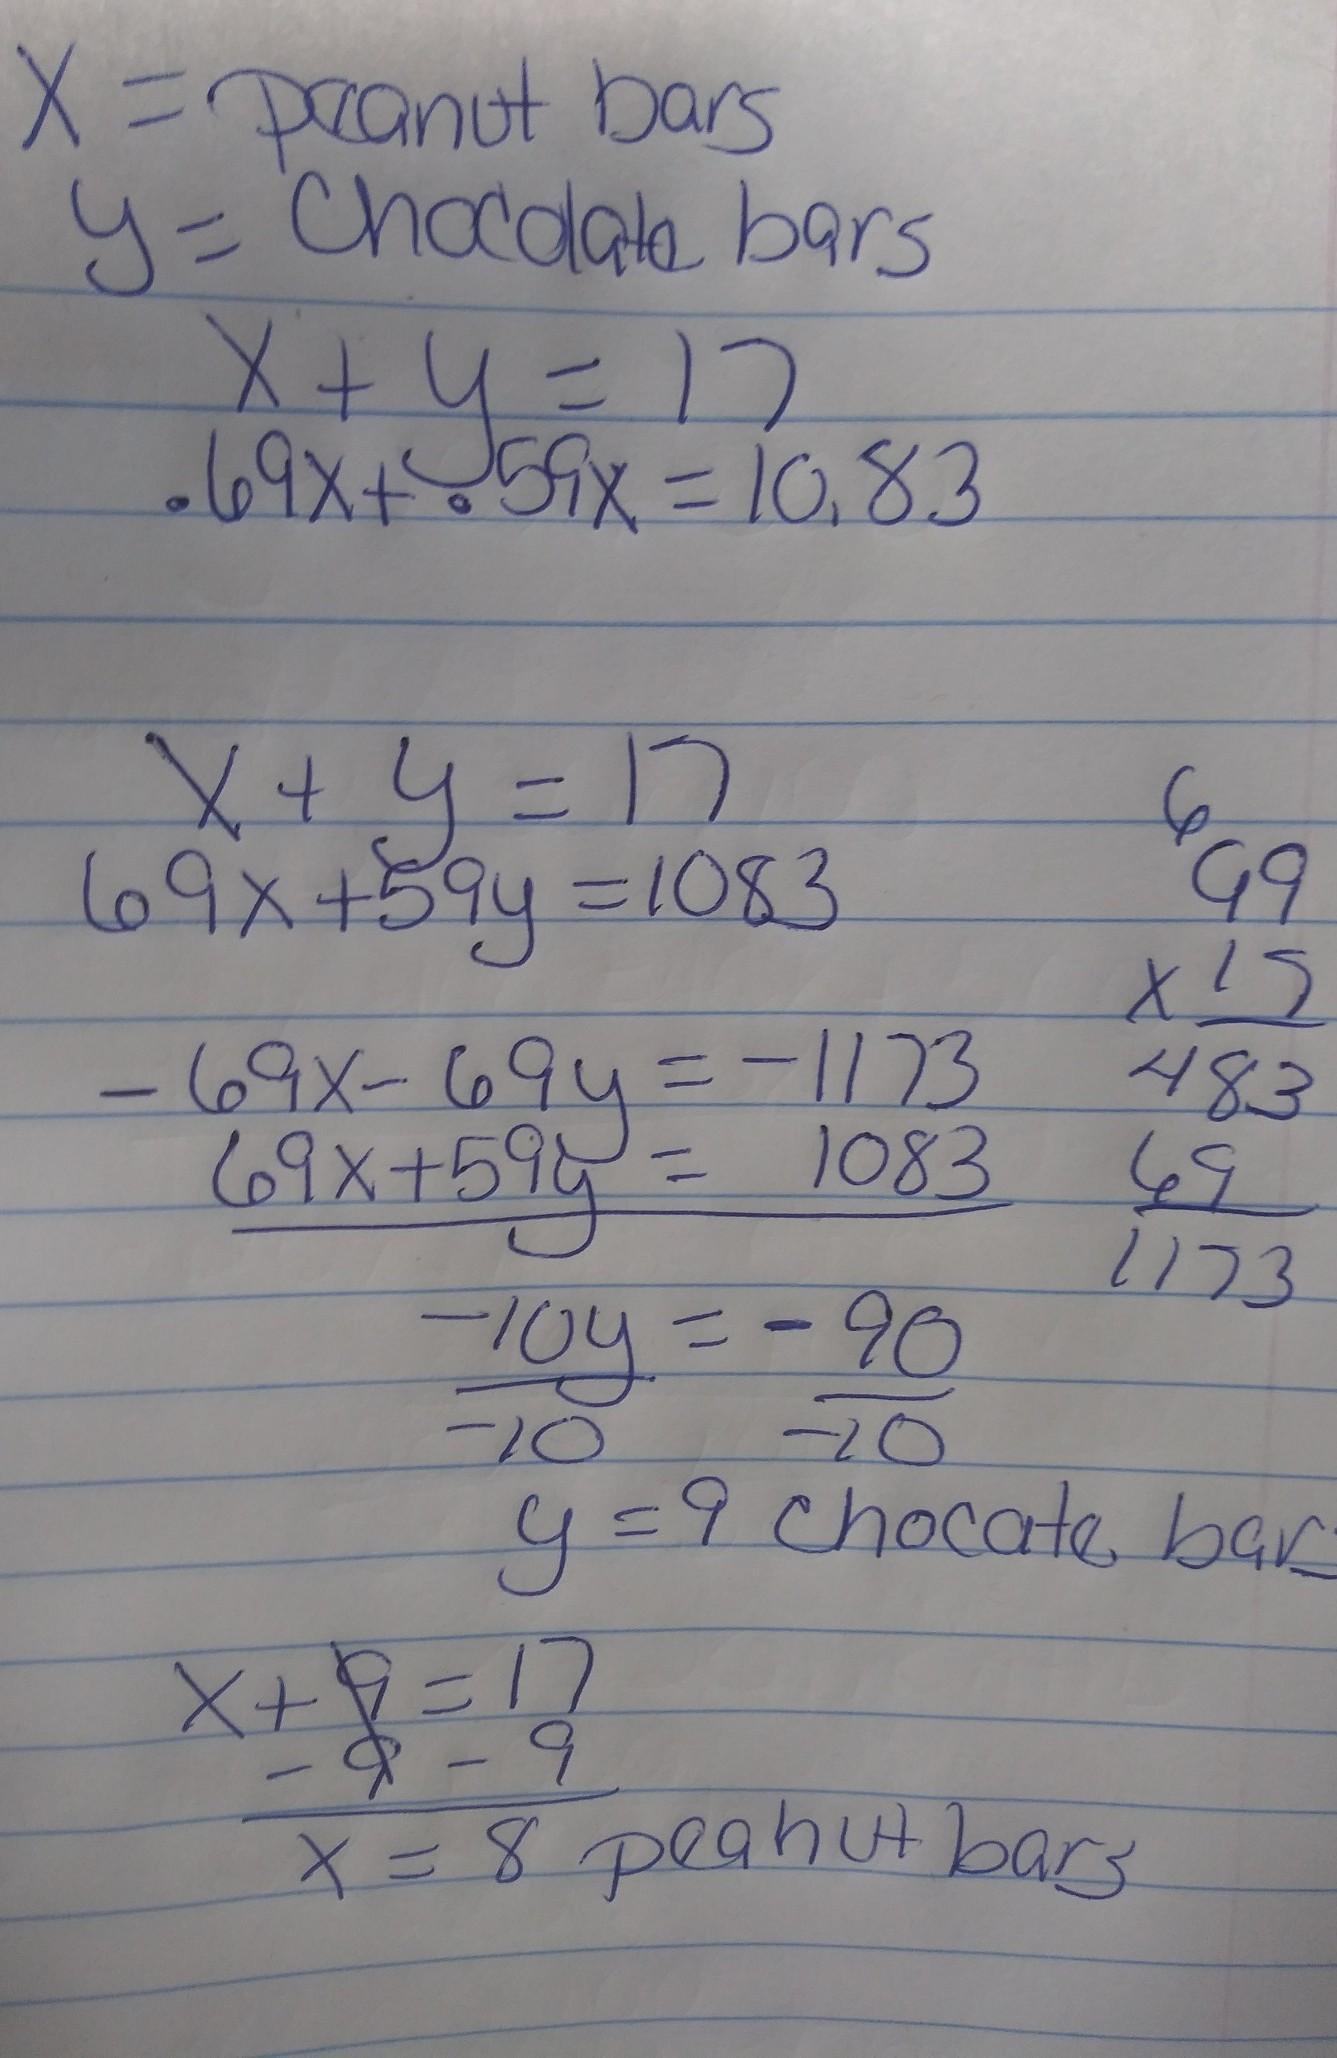 X = peanut bars
y = Chocolate bars
X + y = 17
.69x + .59x = 10.83
X + y = 17
69x + 59y = 1083
-69x - 69y = -1173
69x + 59y = 1083
-10y = -90
-10 -10
y = 9 chocate bars
x + 9 = 17
- 9 - 9
x = 8 peanut bars
6
69
x 17
483
69
1173